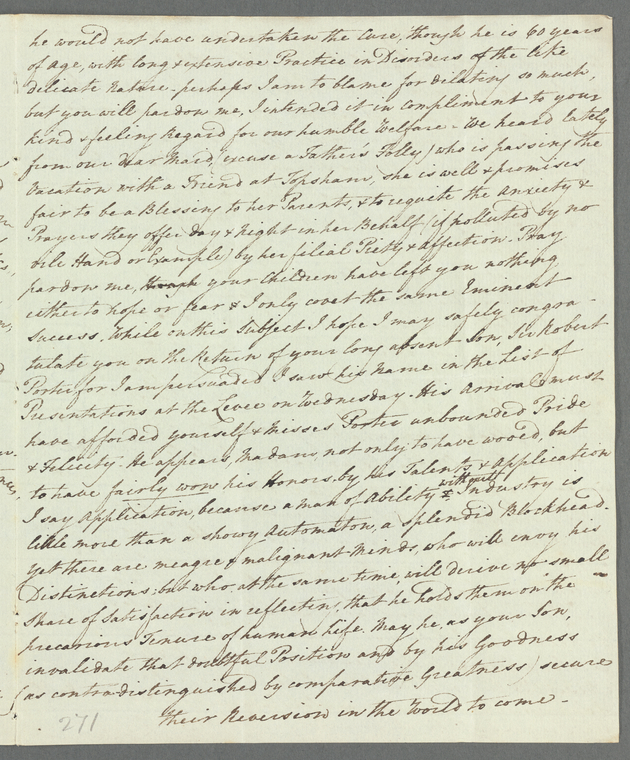 he would not have undertaken the Cure, though he is 60 years
of age, with long & extensive Practice in Disorders of the like
delicate nature - perhaps I am to blame for dilating so much,
but you will pardon me, I intended it in compliment to your
kind & feeling Regard for our humble Welfare - We heard lately
from our dear Maid (excuse a Father's Folly) who is passing the
Vacation with a Friend at Topsham, she is well & promises
fair to be a Blessing to her Parents, & to requite the Anxiety &
Prayers they offer day & Night in her Behalf (if polluted by no
vile Hand or Example) by her filial Piety & affection. Pray
pardon me, your Children have left you nothing
either to hope or fear & I only covet the same Eminent
Success. While on this Subject I hope I may safely congra-
tulate you on the Return of your long absent Son, Sir Robert
Porter, for I am persuaded I saw his name in the List of
Presentations at the Levee on Wednesday - His Arrival must
have afforded yourself & Misses Porter unbounded Pride
& Felicity. He appears, Madam, not only to have wooed, but
to have fairly won his Honors by his Talents & Application
I say Application, because a man of Ability without Industry is
little more than a showy Automaton, a splendid Blockhead.
Yet there are meagre & malignant Minds, who will envy his
Distinctions: but who at the same time, will derive no small
share of Satisfaction in reflecting, that he holds them on the
precarious Tenure of human life. May he, as your Son,
invalidate that doubtful Position and by his Goodness
(as contradistinguished by comparative Greatness) secure
their Reversion in the World to come -
271